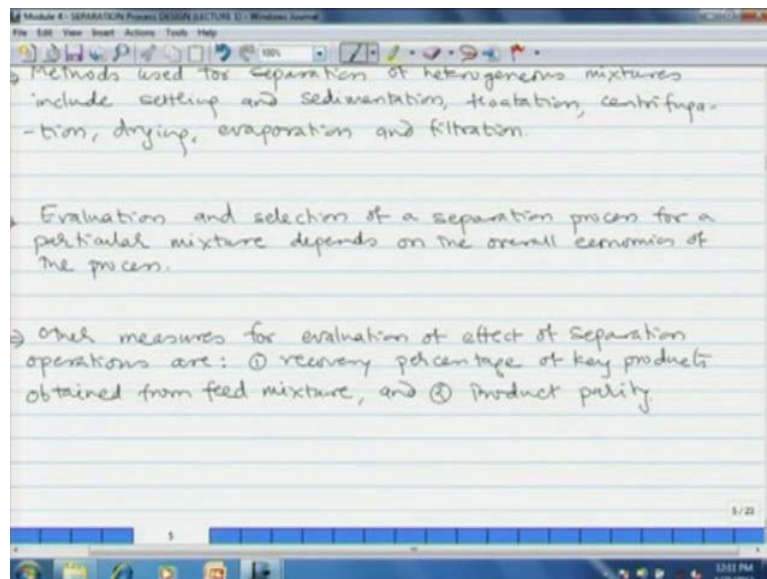 Module 4 - SEPARATION Process DESIGN (LECTURE 1) - Windows Journal
File Edit View Insert Actions Tools Help
100%
Methods used for separation of heterogeneous mixtures
include settling and sedimentation, floatation, centrifuga-
-tion, drying, evaporation and filtration.
Evaluation and selection of a separation process for a
particular mixture depends on the overall economics of
the process.
⇒ Other measures for evaluation of effect of separation
operations are: ① recovery percentage of key products
obtained from feed mixture, and ② Product purity
5 / 23
5
12:11 PM